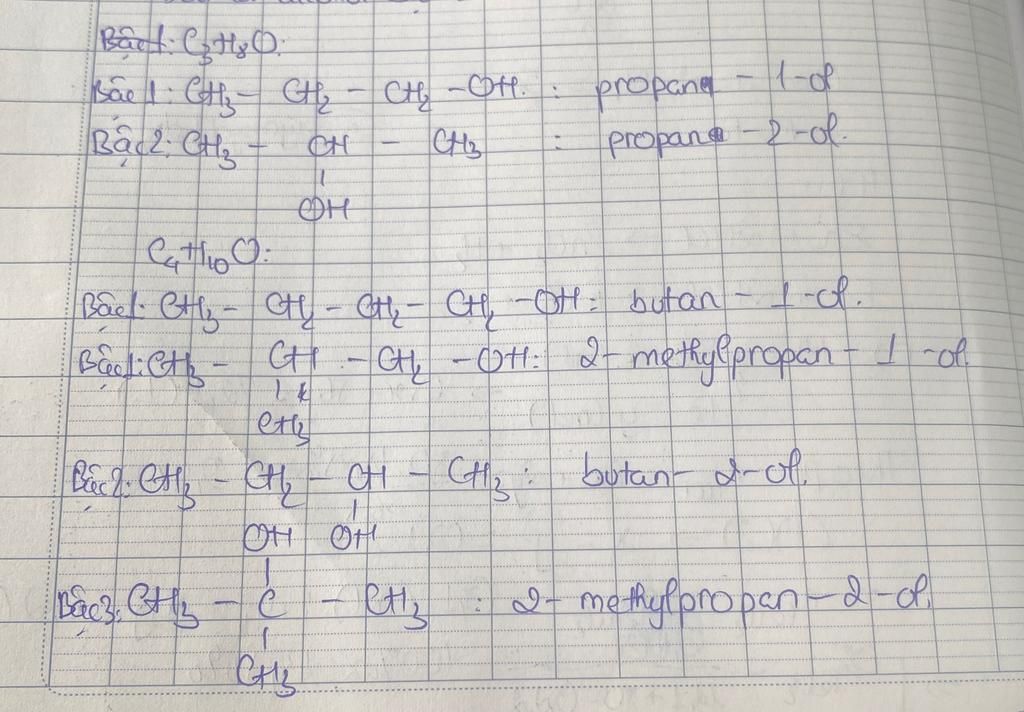 Bậc1: C3H8O:
Bậc 1: CH3 - CH2 - CH2 - OH. : propan - 1-ol
Bậc2: CH3 - CH - CH3 : propan - 2-ol.
OH
C4H10O:
Bậc1: CH3 - CH2 - CH2 - CH2 - OH: butan - 1-ol.
Bậc1: CH3 - CH - CH2 - OH: 2-methylpropan-1-ol.
CH3
Bậc2: CH3 - CH2 - CH - CH3: butan-2-ol.
OH OH
Bậc3: CH3 - C - CH3 : 2-methylpropan-2-ol.
CH3